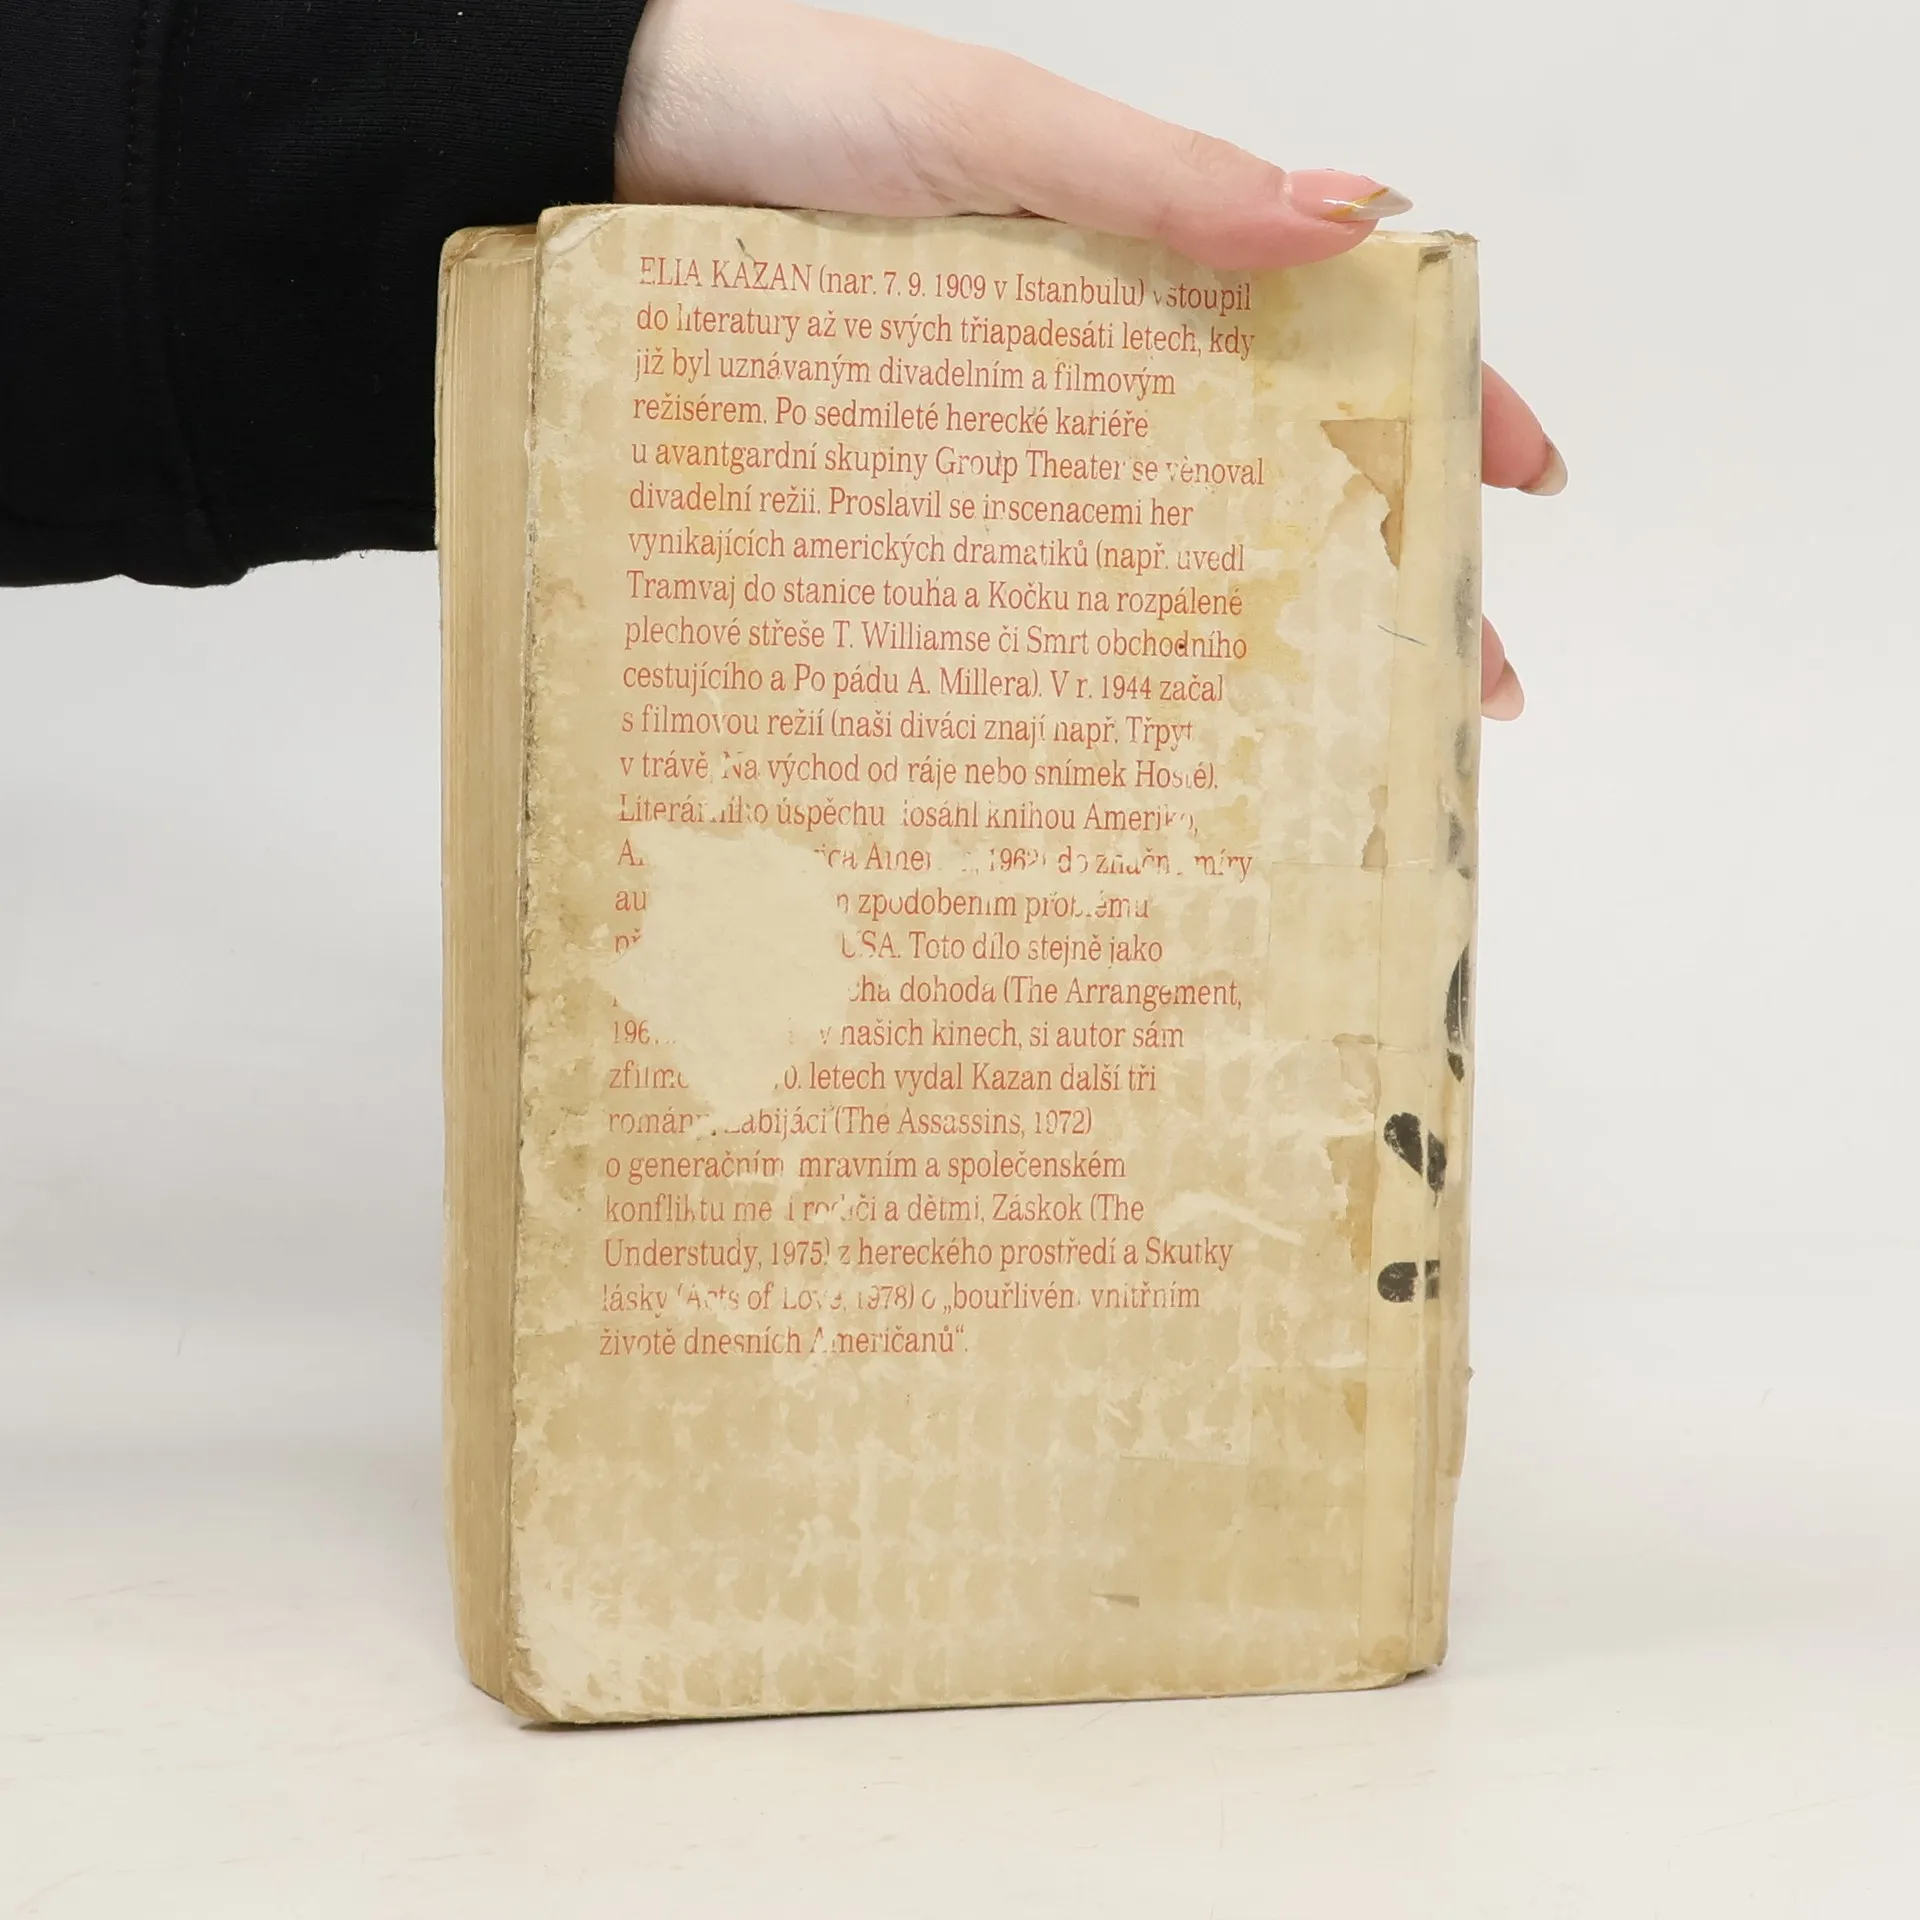 ELIA KAZAN (nar. 7. 9. 1909 v Istanbulu) vstoupil
do literatury až ve svých třiapadesáti letech, kdy
již byl uznávaným divadelním a filmovým
režisérem. Po sedmileté herecké kariéře
u avantgardní skupiny Group Theater se věnoval
divadelní režii. Proslavil se inscenacemi her
vynikajících amerických dramatiků (např. uvedl
Tramvaj do stanice touha a Kočku na rozpálené
plechové střeše T. Williamse či Smrt obchodního
cestujícího a Po pádu A. Millera). V r. 1944 začal
s filmovou režií (naši diváci znají např. Třpyt
v trávě, Na východ od ráje nebo snímek Hosté).
Literárního úspěchu dosáhl knihou Ameriko,
do značné míry
zpodobením problému
USA. Toto dílo stejně jako
dohoda (The Arrangement,
v našich kinech, si autor sám
letech vydal Kazan další tři
romány: Zabijáci (The Assassins, 1972)
o generačním mravním a společenském
konfliktu mezi rodiči a dětmi, Záskok (The
Understudy, 1975) z hereckého prostředí a Skutky
lásky (Acts of Love, 1978) o „bouřlivém vnitřním
životě dnesních Američanů“.